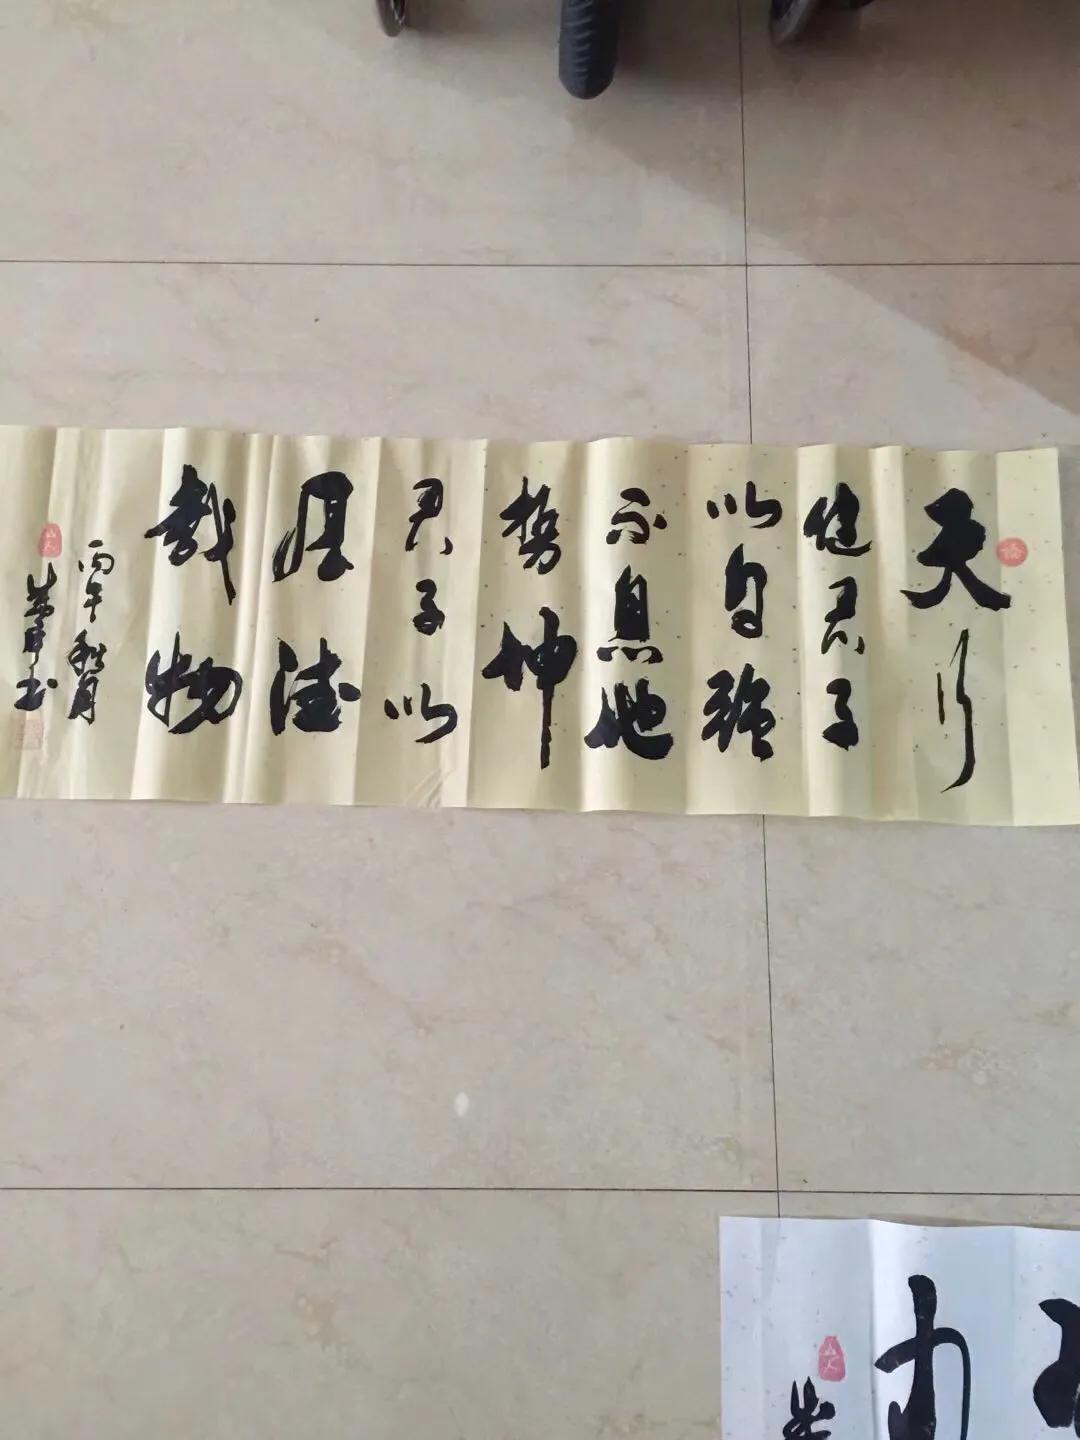 天行
健君子
以自强
不息地
势坤
君子以
厚德
载物
丙午秋月
山人
书
山人
力